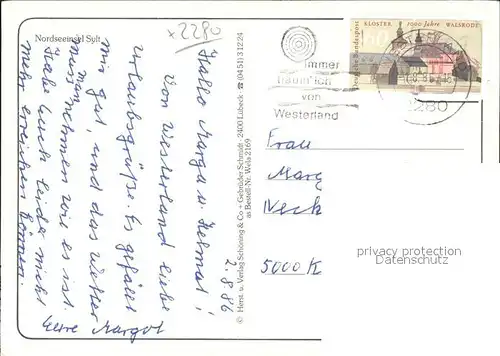 Nordseeinsel Sylt
x 2280
2.8.86
Hallo Marga u. Helmut!
Von Westerland liebe
Urlaubsgrüße. Es gefällt
mir gut, und das Wetter
muss man nehmen wie es ist.
Habe Euch leider nicht
mehr erreichen können.
Eure Margot
© Herst. u. Verlag Schöning & Co + Gebrüder Schmidt · 2400 Lübeck ☎ (04 51) 3 12 24
Bestell-Nr. Wela 2169
KLOSTER 1000 Jahre WALSRODE
Deutsche Bundespost
immer
träum' ich
von
Westerland
2280
Frau
Marg
Neck
5000 K
privacy protection
Datenschutz